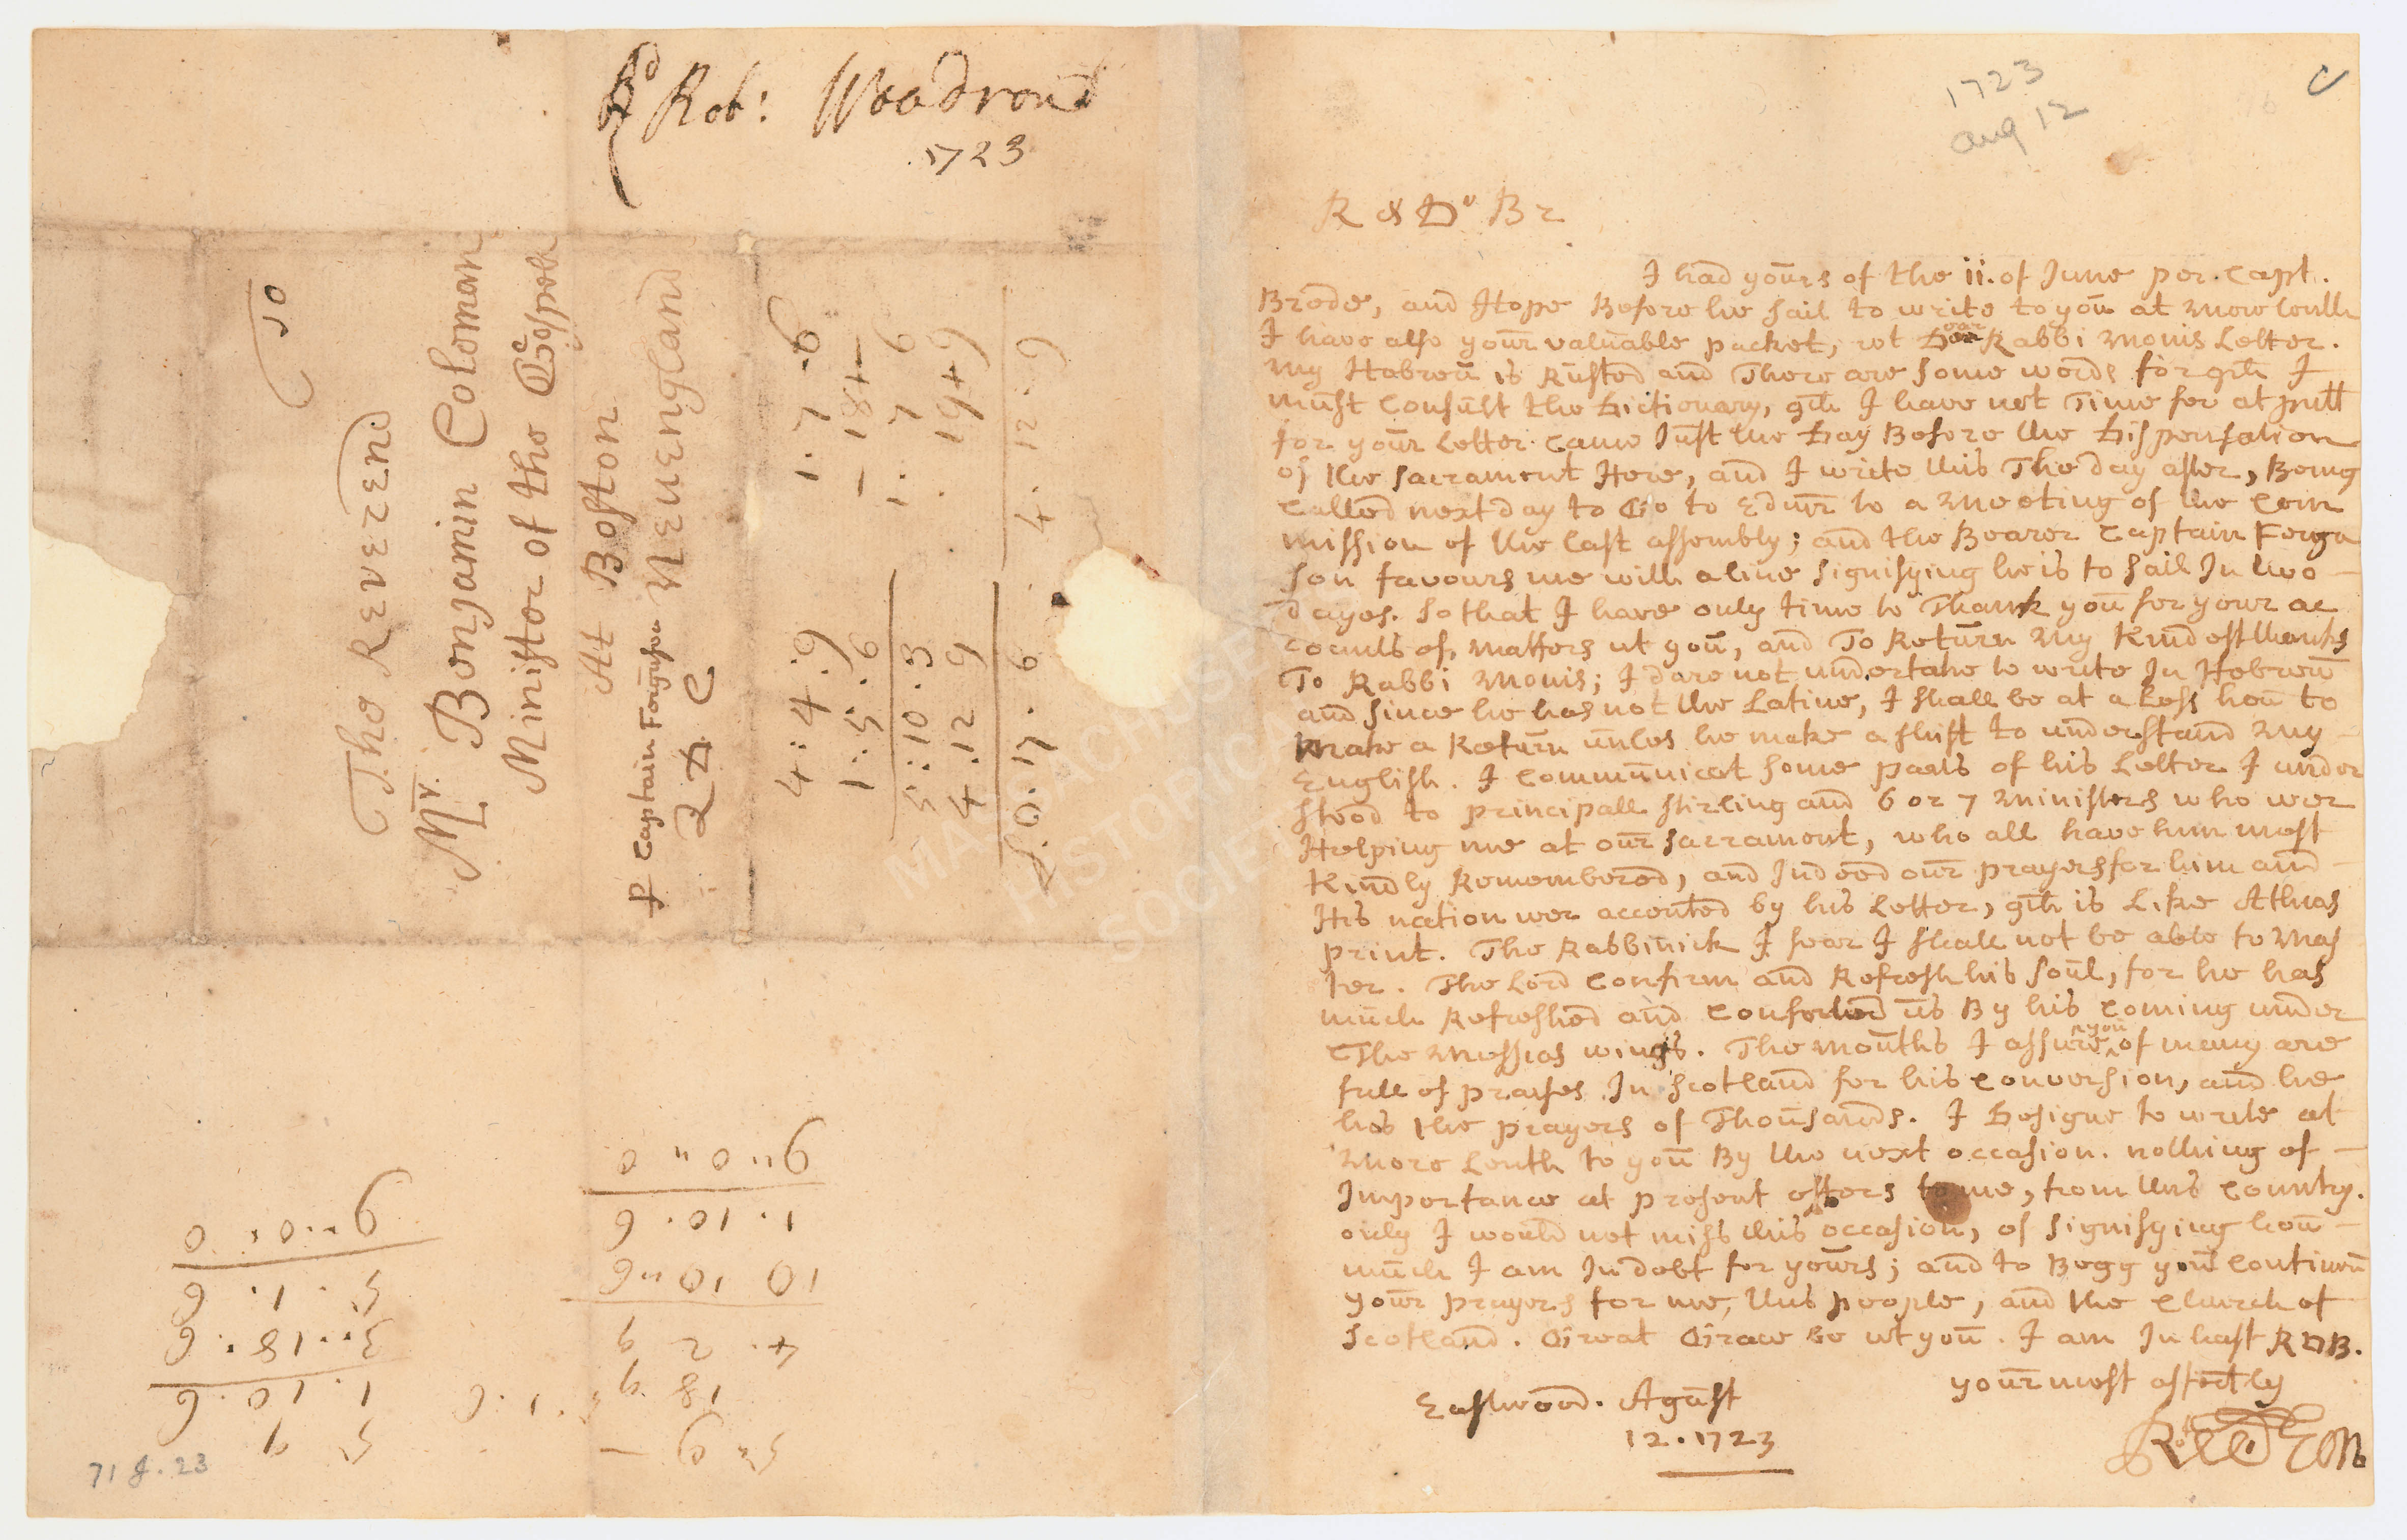 Rd Robt Woodroud
1723
To
The Reverend
Mr Benjamin Coloman
Minister of the Gospel
At Boston
Neuengland
Captain Forguson
1 . 7 . 6
— 18 + —
1 : 7 6
. 19 + 9
4 . 12 . 9
4 : 4 : 9
1 : 5 : 6
5 : 10 . 3
4 . 12 9
0 . 17 . 6
5 " 9 —
18 9
4 . 2 9
10 10 " 6
1 . 10 . 6
9 " 0 " 0
5 9
1 . 10 . 6
3 . . 18 . 6
5 . 1 . 6
9 . . 0 . . 0
71 J . 23
1723
aug 12
R & Dr Br
I had yours of the 11. of June per Capt.
Brede, and Hope Before he sail to write to you at more lenth
I have also your valuable packet, wt Dear Rabbi Monis Letter.
My Hebreu is Rusted and There are some words for qch I
must Consult the Dictionary, qch I have not Time for at pntt
for your Letter came Just the Day Before the Dispensation
of the Sacrament Here, and I write this The day after, Being
Called next day to Go to Edinr to a Meeting of the Com
mission of the last assembly; and the Bearer Captain Fergu
son favours me with a line signifying he is to sail In two
dayes. So that I have only time to Thank you for your ac
counts of matters wt you, and To Return My Kindest thanks
To Rabbi Monis; I dare not undertake to write In Hebreu
and since he has not the Latine, I shall be at a Loss hou to
Make a Return unles he make a shift to understand My
English. I Communicat some parts of his Letter I under
stood to principall Stirling and 6 or 7 Ministers who wer
Helping me at our Sacrament, who all have him most
Kindly Remembered, and Indeed our prayers for him and
His nation wer accented by his Letter, qch is Like Athias
print. The Rabbinick I fear I shall not be able to Mas
ter. The Lord Confirm and Refresh his soul, for he has
much Refreshed and Comforted us By his Coming under
The Messias wings. The mouths I assure you of many are
full of praises In Scotland for his Conversion, and he
has the prayers of Thousands. I Designe to write at
More Lenth to you By the next occasion. nothing of
Importance at present offers to me, from this Country.
only I would not miss this occasion, of signifying hou
much I am In debt for yours; and to Begg you Continou
your prayers for me, this people, and the Church of
Scotland. Great Grace be wt you. I am In hast R D B.
your most affectly
Eastwood. Agust
12 . 1723